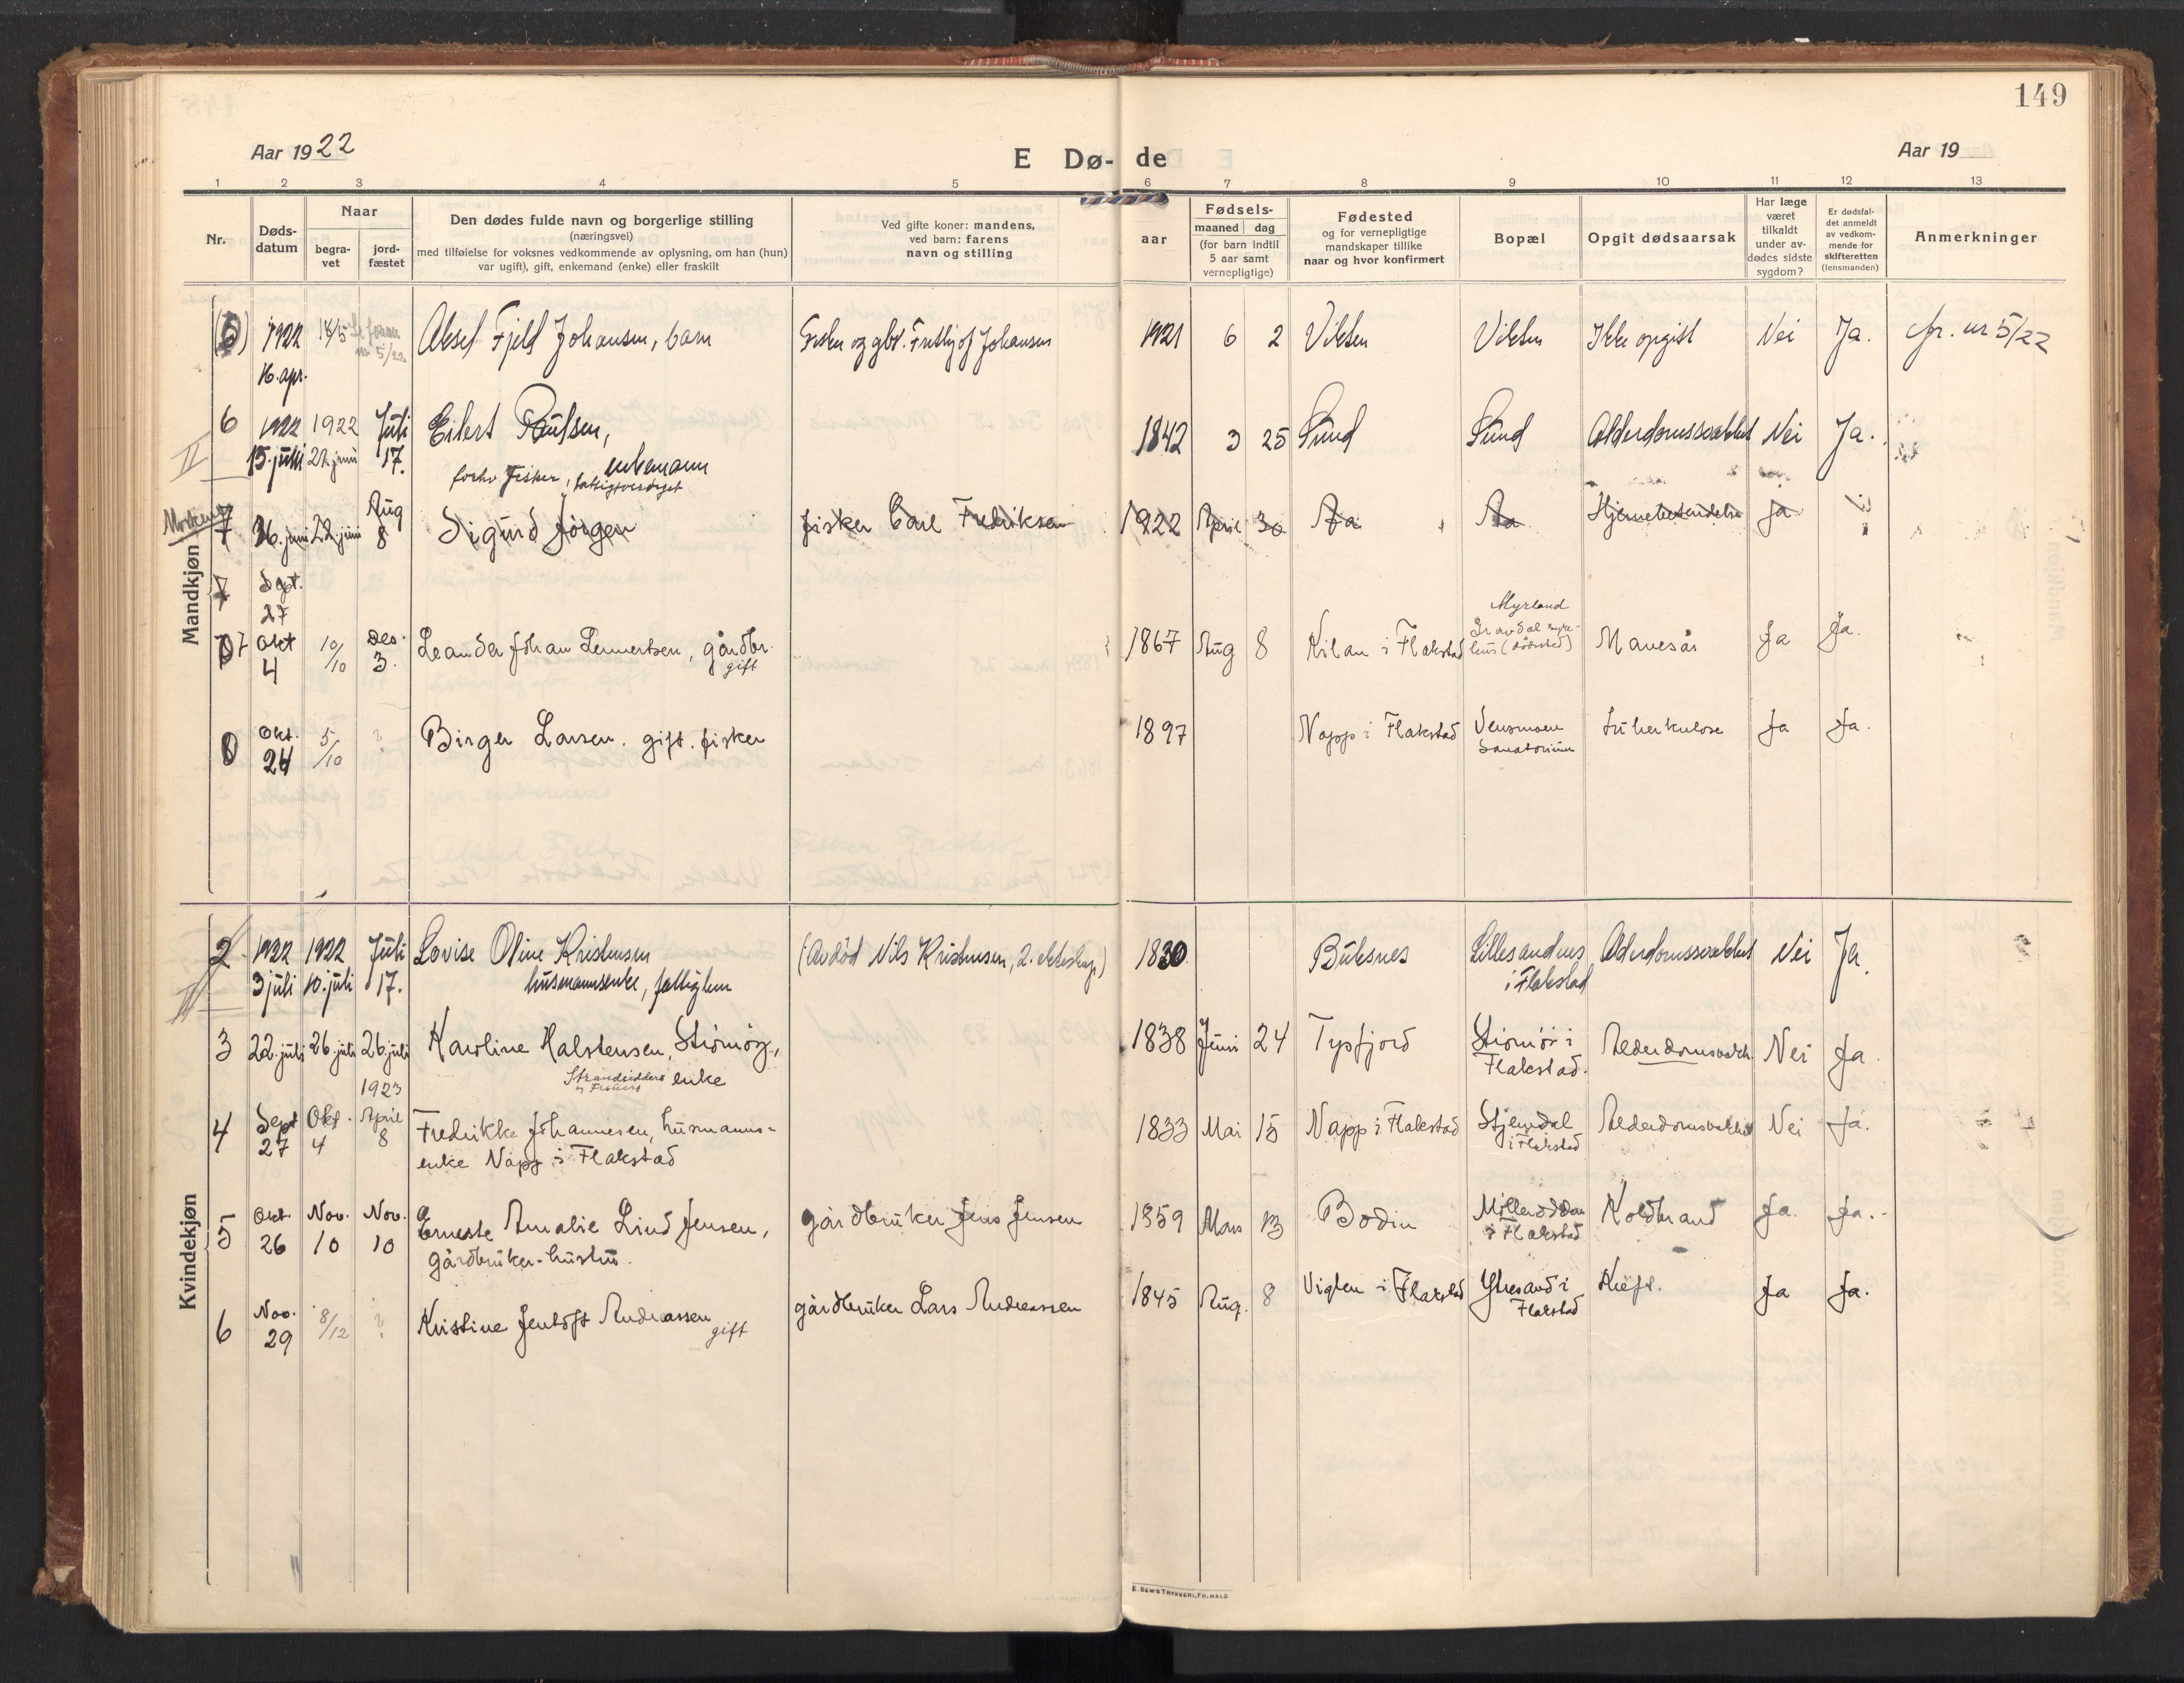 149
Aar 1922
E Dø- de
Aar 19
1 2 3 4 5 6 7 8 9 10 11 12 13
Nr.
Døds-
datum
Naar
begra-
vet
jord-
fæstet
Den dødes fulde navn og borgerlige stilling
(næringsvei)
med tilføielse for voksnes vedkommende av oplysning, om han (hun)
var ugift), gift, enkemand (enke) eller fraskilt
Ved gifte koner: mandens,
ved barn: farens
navn og stilling
aar
Fødsels-
maaned dag
(for barn indtil
5 aar samt
vernepligtige)
Fødested
og for vernepligtige
mandskaper tillike
naar og hvor konfirmert
Bopæl
Opgit dødsaarsak
Har læge
været
tilkaldt
under av-
dødes sidste
sygdom?
Er dødsfal-
det anmeldt
av vedkom-
mende for
skifteretten
(lensmanden)
Anmerkninger
Mandkjøn
(5) 1922 18/5 Aksel Fjeld Johansen, barn Fisker og gbr. Fritljof Johansen 1921 6 2 Vikten Vikten Ikke opgit Nei Ja. cfr. nr 5/22
16. apr. nr 5/22
6 1922 1922 Juli Eilert Paulsen, 1842 3 25 Sund Sund Alderdomssvakhet Nei Ja.
II 15. juli 22 juni 17. enkemann
forhv fisker, fattigforsørget
7 16. juni 22. juni Aug 8 Sigurd Jørgen fisker Carl Fredriksen 1922 April 30 Aa Aa Hjernebetændelse Ja
7 Sept.
27
7 Okt 10/10 Des. Leander Johan Lennertsen, gårdbr. 1867 Aug 8 Kilan i Flakstad Myrland
Gravdal syke-
hus (dødssted) Mavesår Ja Ja.
4 3. gift
8 Okt. 5/10 ? Birger Larsen. gift. fisker 1897 Napp i Flakstad Vensmoen
Sanatorium tuberkulose Ja Ja.
24
Kvindekjøn
2 1922 1922 Juli Lovise Oline Kristensen (Avdød Nils Kristensen, 2. ekteskap) 1830 Buksnes Lillesandnes
i Flakstad Alderdomssvakhet Nei Ja.
II 3 juli 10. juli 17. husmannsenke, fattiglem
3 22. juli 26. juli 26. juli Karoline Halstensen, Strømøy, 1838 Juni 24 Tysfjord Strømøi i
Flakstad. Alderdomssvakh. Nei Ja.
Strandsidders enke
og Fiskers
1923
4 Sept Okt. April Fredrikke Johannesen, husmanns- 1833 Mai 15 Napp i Flakstad Stjerndal
i Flakstad Alderdomsvakhet Nei Ja.
27 4 8 enke Napp i Flakstad
5 Okt. Nov. Nov. Erneste Amalie Lind Jensen, gårdbruker Jens Jensen 1859 Mars 13 Bodin Mølleroddan
i Flakstad Koldbrand Ja. Ja.
26 10 10 gårdbruker-hustru.
6 Nov. 8/12 ? Kristine Jentoft Andreassen gårdbruker Lars Andreassen 1845 Aug. 8 Vigten i Flakstad Ytresand i
Flakstad Kræft. Ja Ja.
29 gift
E. SEM'S TRYKKERI, FR.HALD